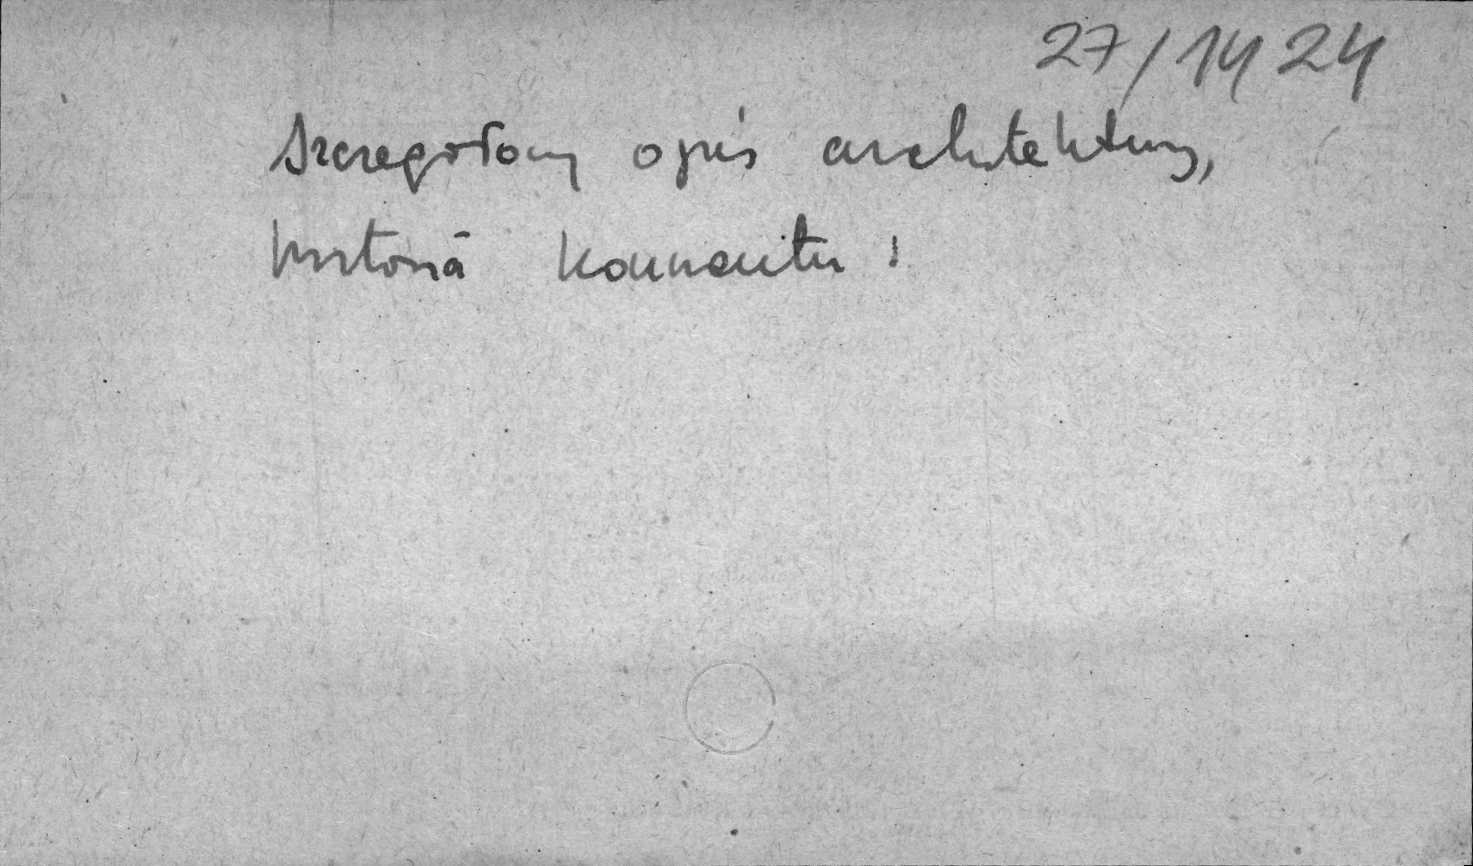 27/1424
Szczegółowy opis architektury,
historia konwentu !